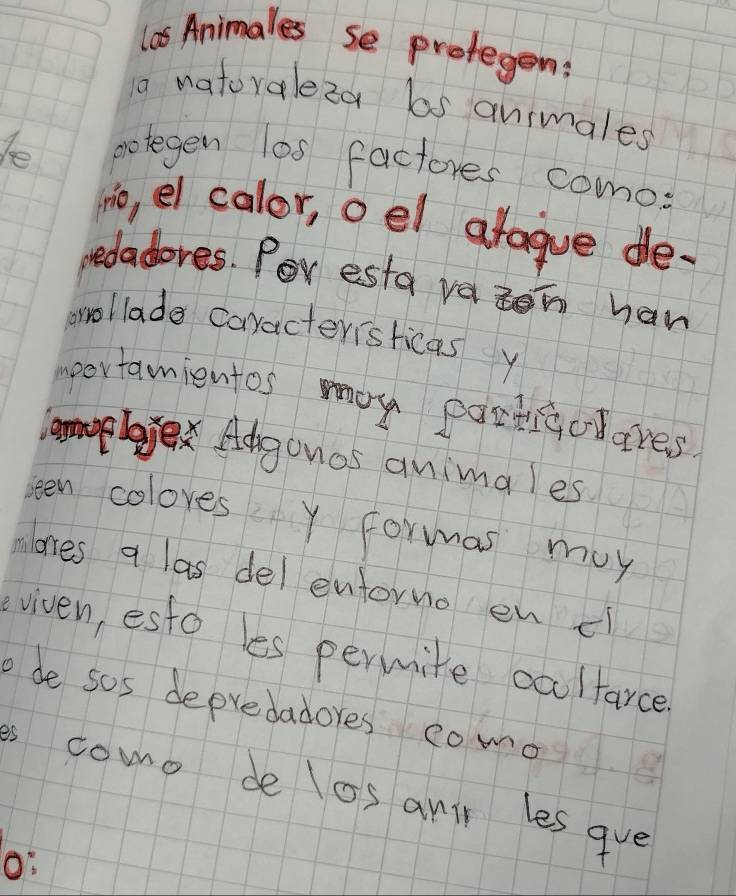 los Animales se protegen:
la naturaleza los animales
protegen los factores como:
frio, el calor, o el ataque de-
predadores. Por esta razón han
arrollado características y
mportamientos muy particulares.
Camuflajes Algunos animales
seen colores y formas muy
milares a las del entorno en el
e viven, esto les permite ocultarce.
o de sus depredadores como
es como de los les que
lo: